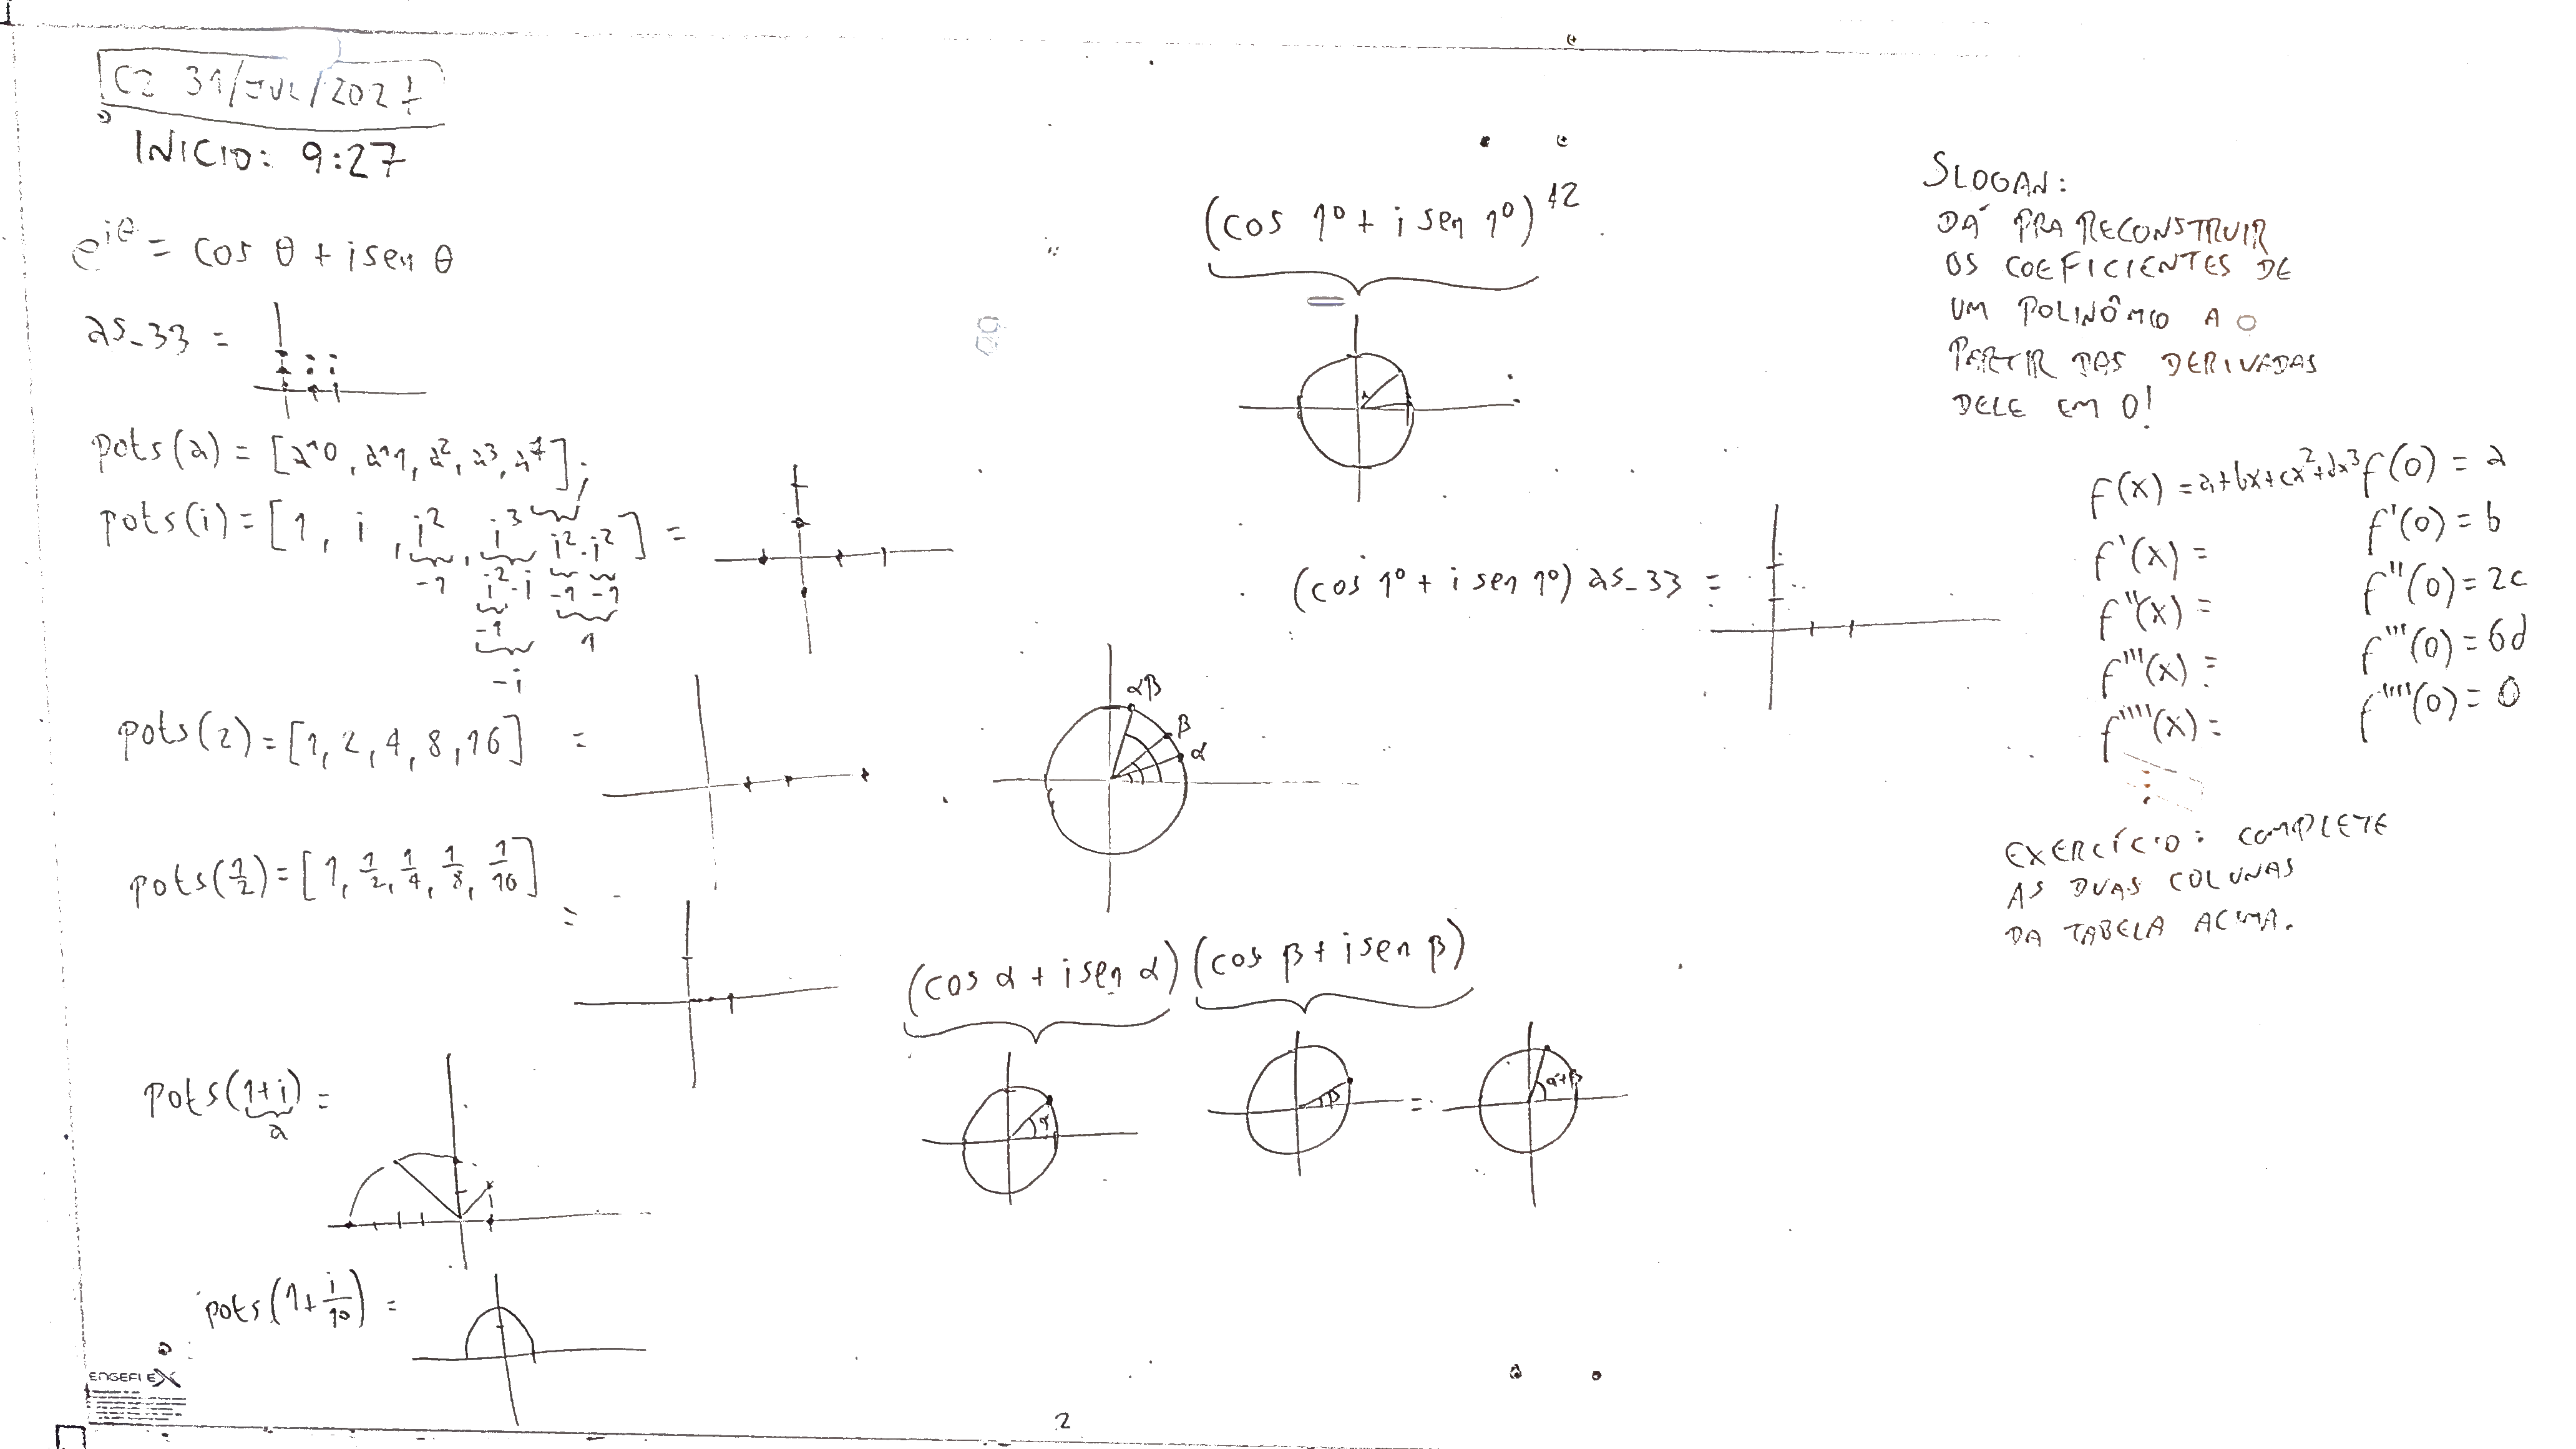 C2 31/JUL/202
INICIO: 9:27
e^{iθ} = cos θ + i sen θ
as_33 =
pots(a) = [a^0, a^1, a^2, a^3, a^4];
pots(i) = [1, i, i^2, i^3, i^2·i^2] =
-1 i^2·i -1 -1
-1 1
-i
pots(2) = [1, 2, 4, 8, 16] =
pots(1/2) = [1, 1/2, 1/4, 1/8, 1/16]
=
pots(1+i) =
a
pots(1+i/10) =
ENGEFLEX
(cos 1° + i sen 1°)^{42}
=
(cos 1° + i sen 1°) as_33 =
αβ
β
α
(cos α + i sen α)(cos β + i sen β)
α β = α+β
2
SLOGAN:
DÁ PRA RECONSTRUIR
OS COEFICIENTES DE
UM POLINÔMIO A
PARTIR DAS DERIVADAS
DELE EM 0!
f(x) = a+bx+cx^2+dx^3 f(0) = a
f'(x) = f'(0) = b
f''(x) = f''(0) = 2c
f'''(x) = f'''(0) = 6d
f''''(x) = f''''(0) = 0
⋮
EXERCÍCIO: COMPLETE
AS DUAS COLUNAS
DA TABELA ACIMA.